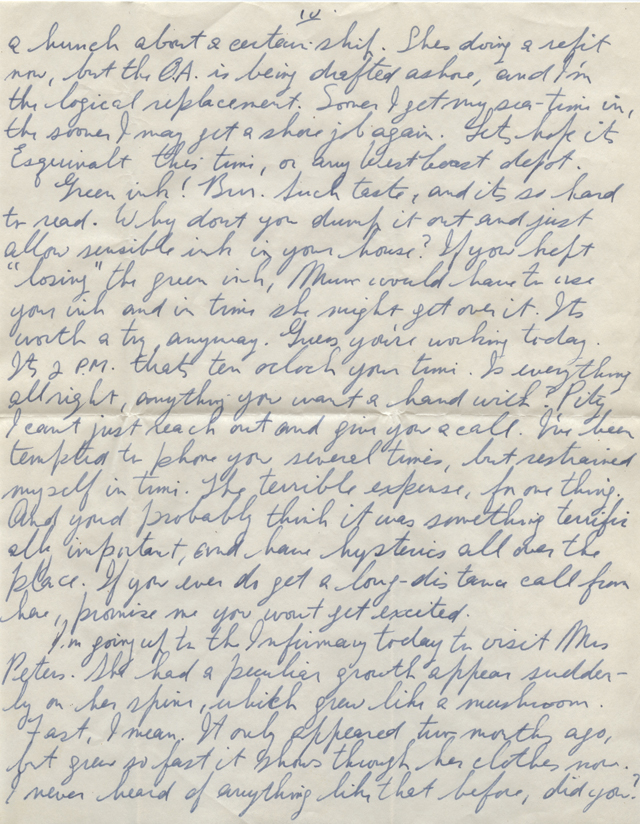 IV.
a hunch about a certain ship. Shes doing a refit
now, but the O.A. is being drafted ashore, and I'm
the logical replacement. Sooner I get my sea-time in,
the sooner I may get a shore job again. Lets hope its
Esquimalt this time, or any West Coast depot.
Green ink! Brrr. Such taste, and its so hard
to read. Why dont you dump it out and just
allow sensible ink in your house? If you kept
"losing" the green ink, Mum would have to use
your ink and in time she might get over it. Its
worth a try, anyway. Guess you're working today.
Its 2 P.M. thats ten oclock your time. Is everything
allright, anything you want a hand with? Pity
I cant just reach out and give you a call. I've been
tempted to phone you several times, but restrained
myself in time. The terrible expense, for one thing,
And youd probably think it was something terrific
ally important, and have hysterics all over the
place. If you ever do get a long-distance call from
here, promise me you wont get excited.
I'm going up to the Infirmary today to visit Mrs
Peters. She had a peculiar growth appear sudden-
ly on her spine, which grew like a mushroom.
Fast, I mean. It only appeared two months ago,
but grew so fast it shows through her clothes now.
I never heard of anything like that before, did you?